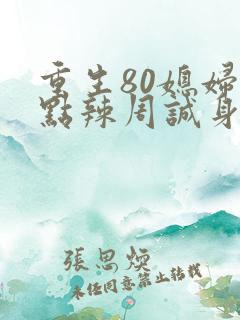 重生80媳婦
點辣周誠身
張思煥
未經同意禁止轉載